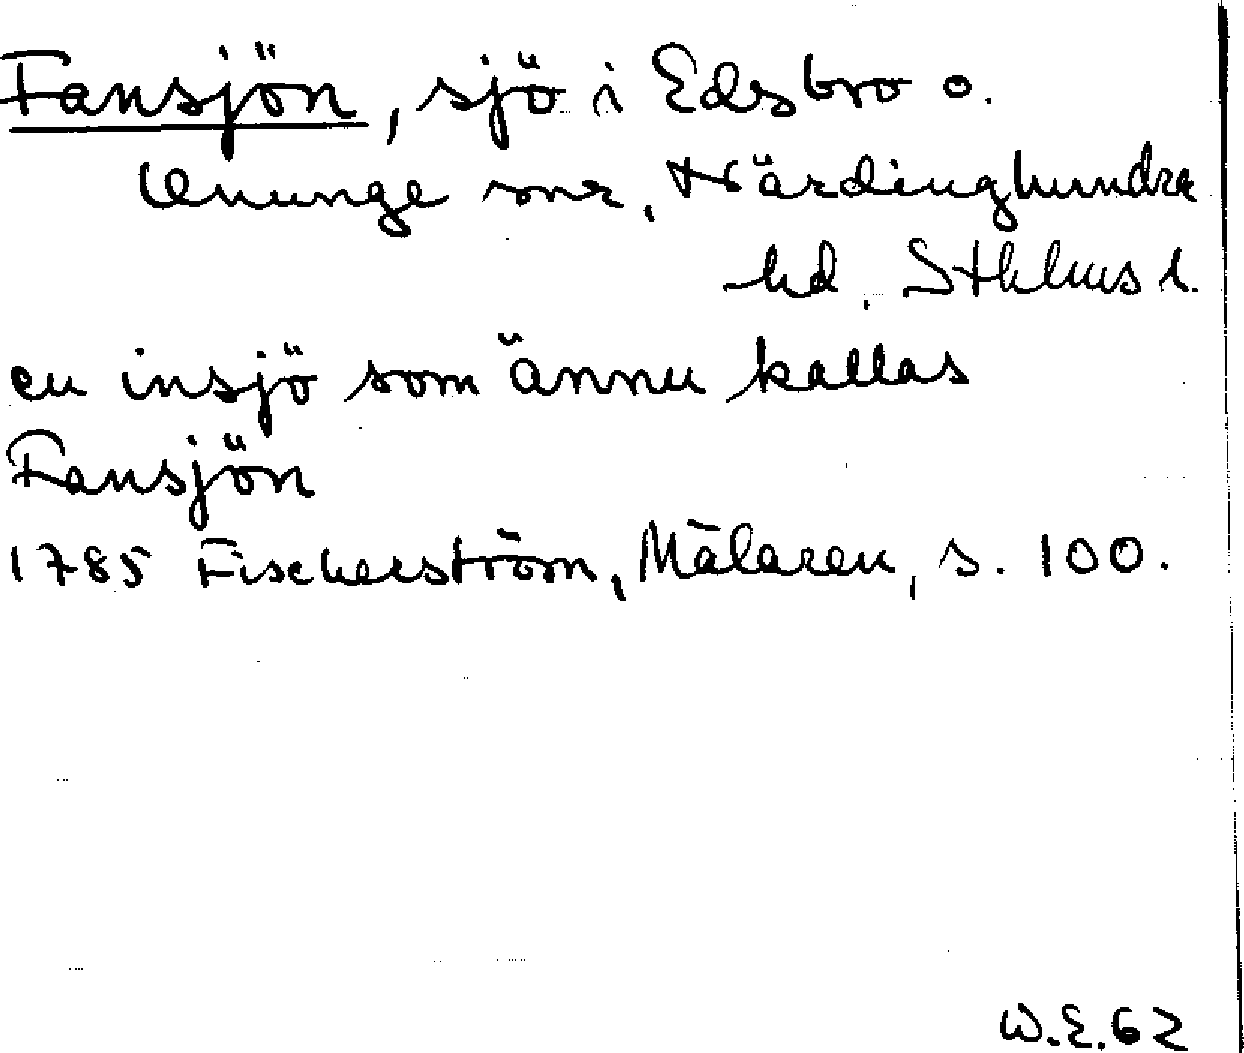 Fansjön, sjö i Edsbro o.
Ununge snr, Närdinghundra
hd, Sthlms l.
en insjö som ännu kallas
Fansjön
1785 Fischerström, Mälaren, s. 100.
W.E. 62